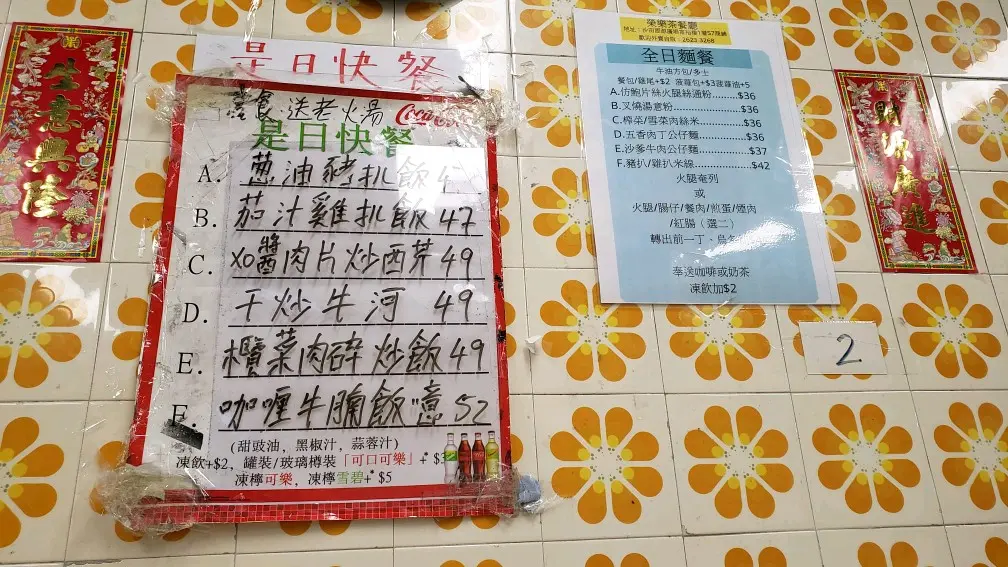 生意興隆
是日快餐
堂食送老火湯
Coca-Cola
是日快餐
A. 蔥油豬扒飯 4
B. 茄汁雞扒飯 47
C. XO醬肉片炒西芹 49
D. 干炒牛河 49
E. 欖菜肉碎炒飯 49
F. 咖喱牛腩飯 意 52
(甜豉油, 黑椒汁, 蒜蓉汁)
凍飲+$2, 罐裝/玻璃樽裝「可口可樂」+
凍檸可樂, 凍檸雪碧+ $5
榮樂茶餐廳
2623 3268
全日麵餐
牛油方包/多士
餐包/雞尾+$2 菠蘿包+$3菠蘿油+5
A.仿鮑片絲火腿絲通粉..............$36
B.叉燒湯意粉..............$36
C.榨菜/雪菜肉絲米..............$36
D.五香肉丁公仔麵..............$36
E.沙爹牛肉公仔麵..............$37
F.豬扒/雞扒米線..............$42
火腿奄列
或
火腿/腸仔/餐肉/煎蛋/煙肉
/紅腸(選二)
轉出前一丁、烏
奉送咖啡或奶茶
凍飲加$2
財源廣進
2